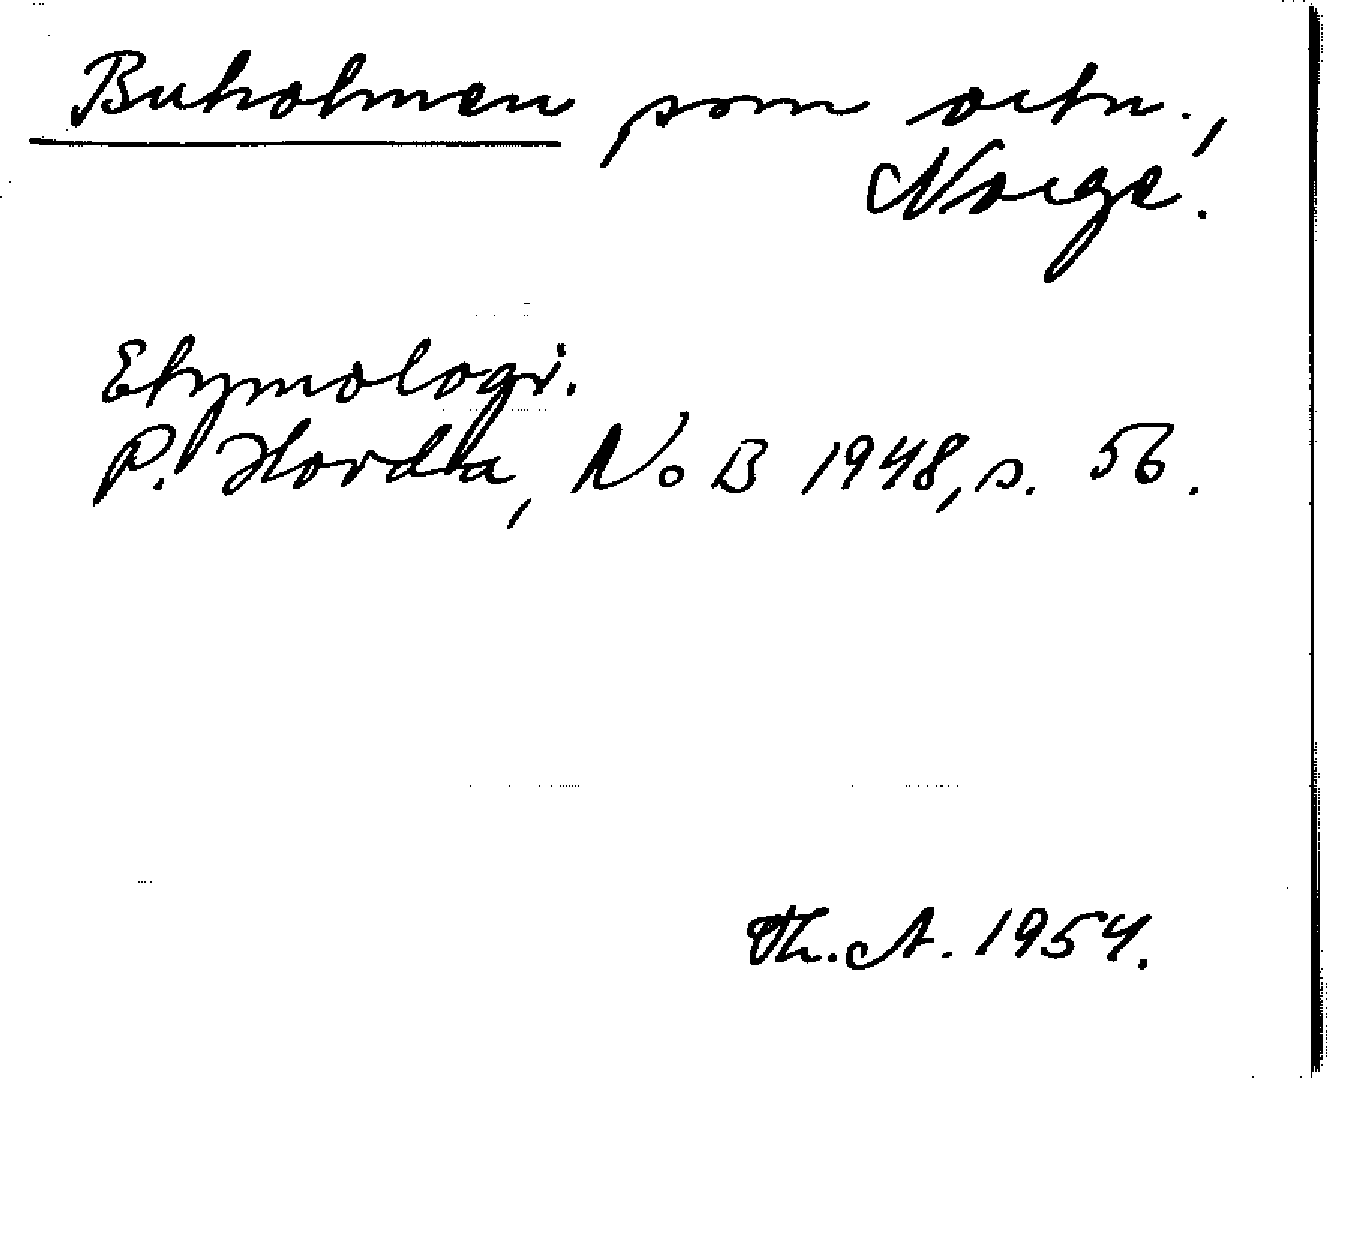 Buholmen som ortn.,
Norge.
Etymologi.
P. Hovda, NoB 1948, s. 56.
Th. A. 1954.